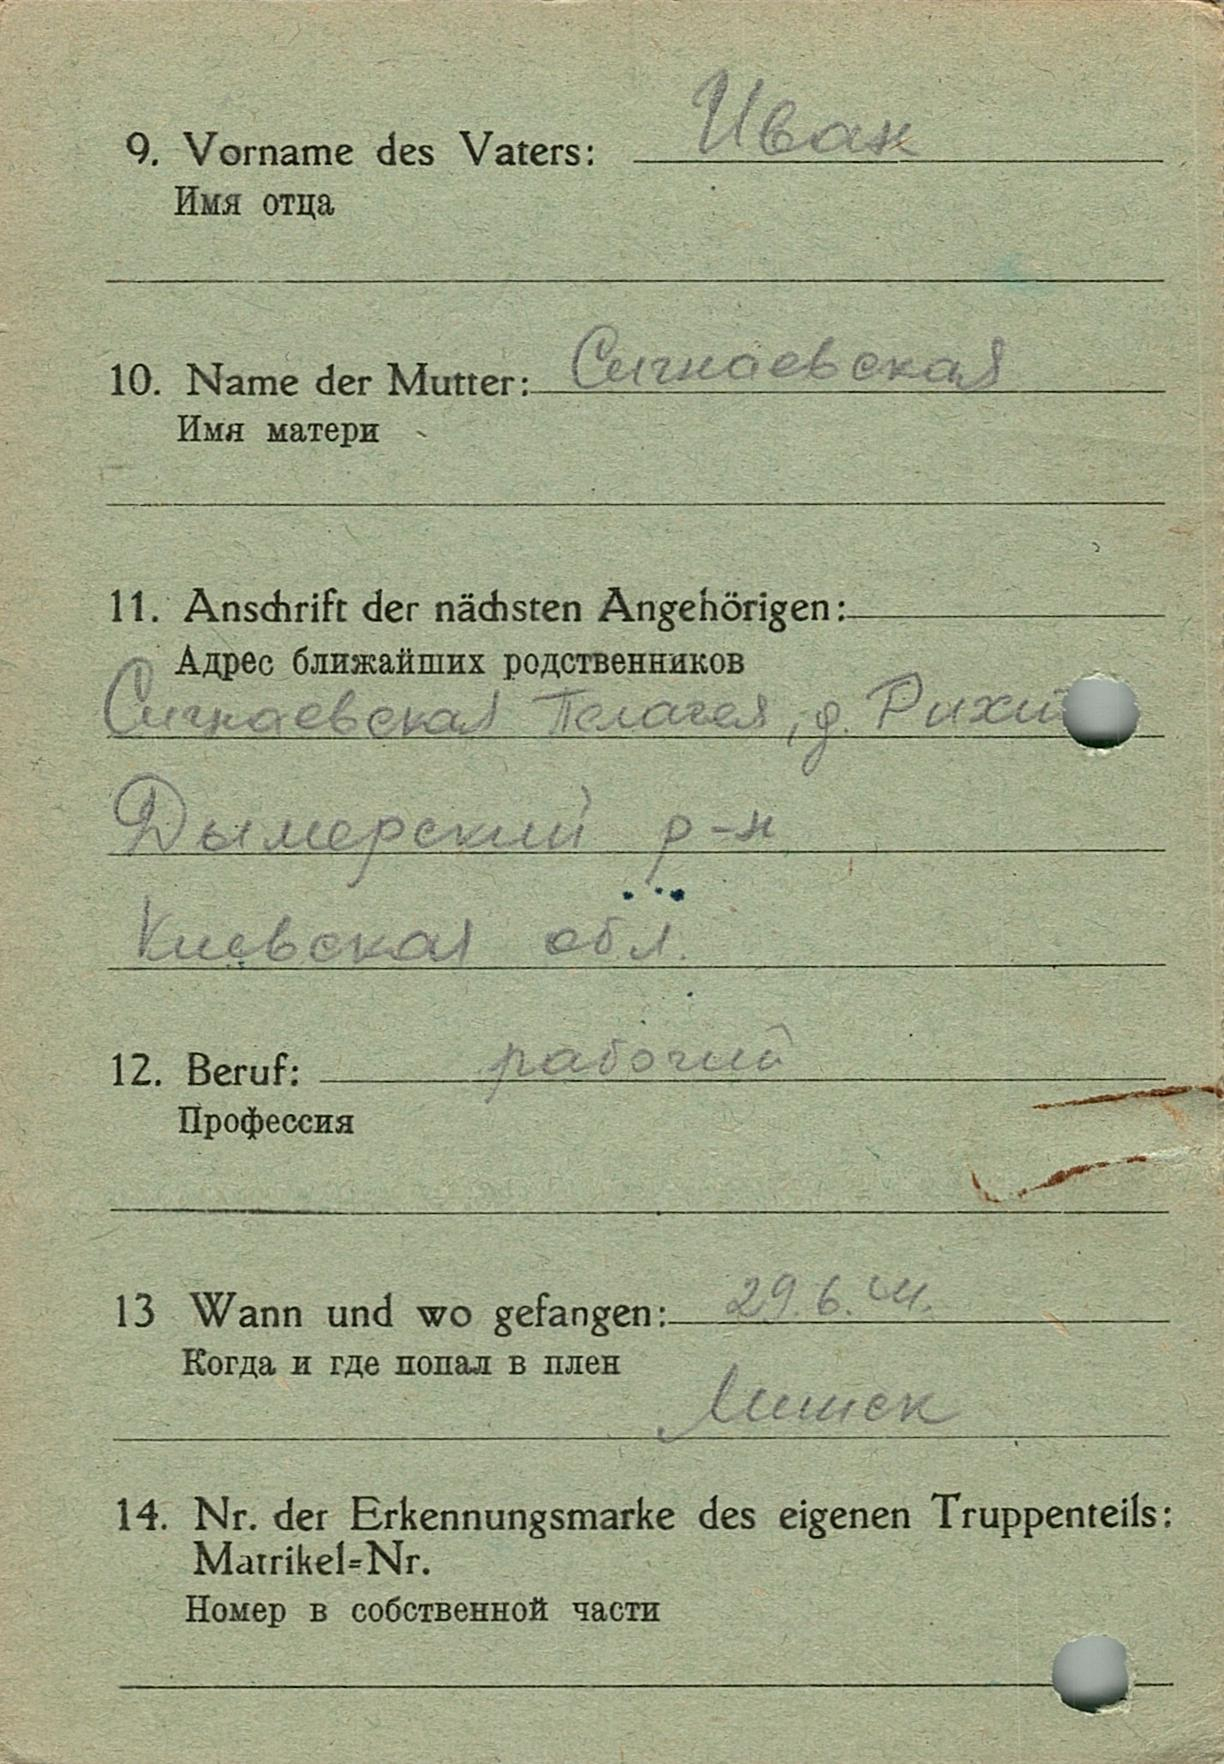 9. Vorname des Vaters: Иван
Имя отца
10. Name der Mutter: Сигнаевская
Имя матери
11. Anschrift der nächsten Angehörigen:
Адрес ближайших родственников
Сигнаевская Пелагея, д.
Дымерский р-н
Киевская обл.
12. Beruf: рабочий
Профессия
13 Wann und wo gefangen: 29.6.41.
Когда и где попал в плен
Минск
14. Nr. der Erkennungsmarke des eigenen Truppenteils:
Matrikel=Nr.
Номер в собственной части